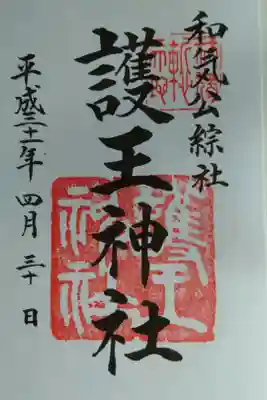 和氣公綜社
護王神社
平成三十一年 四月 三十 日
護王
神社